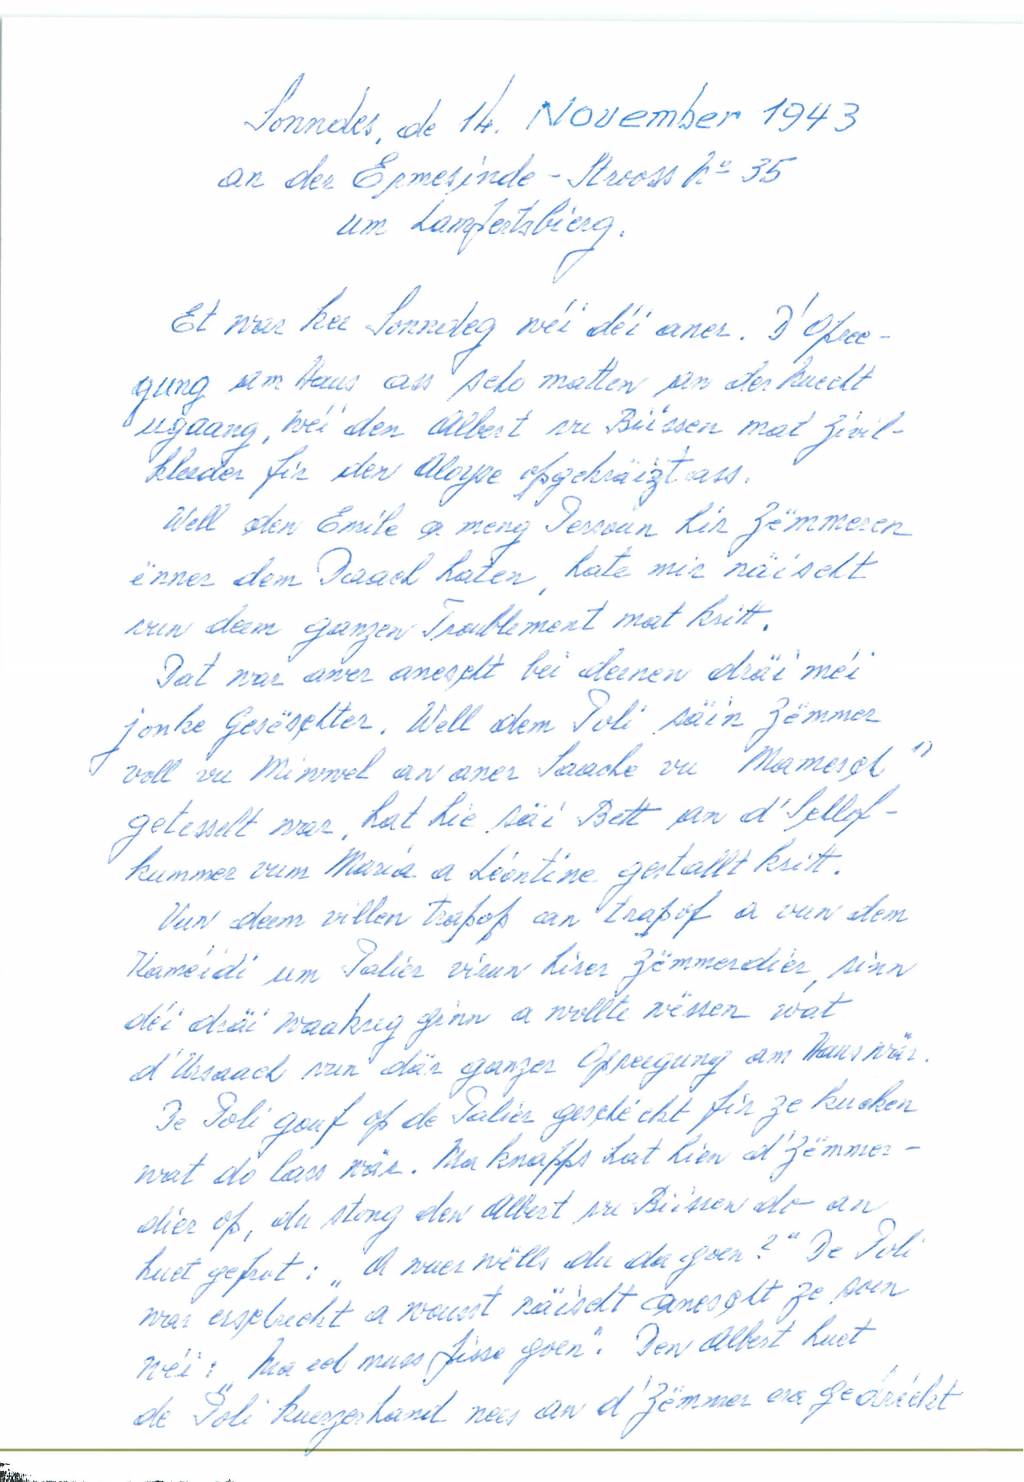 Sonndes, de 14. November 1943
an der Ermesinde - Strooss No 35
um Lampertsbierg.
Et war kee Sonndeg wéi déi aner. D'Opree-
gung am Haus ass scho matten an der Nuecht
ugaang, wéi den Albert vu Biissen mat Zivil-
kleeder fir den Aloyse opgekräizt ass.
Well den Emile a meng Persoun hir Zëmmeren
ënner dem Daach haten, hate mir näischt
vun deem ganzen Troublement mat kritt.
Dat war awer anescht bei deenen dräi méi
jonke Geséschter. Well dem Poli säin Zëmmer
voll vu Miwwel an aner Saache vu Mamerch 1)
getesselt war, hat hie säi Bett an d'Schlof-
kummer vum Maria a Léontine gestallt kritt.
Vun deem villen trapop an trapof a vun dem
Kaméidi um Palier virun hirer Zëmmerdier, sinn
déi dräi waakreg ginn a wollte wëssen wat
d'Ursaach vun där ganzer Opreegung am Haus wär.
De Poli gouf op de Palier geschéckt fir ze kucken
wat do lass wär. Ma knapps hat hien d'Zëmmer-
dier op, du stong den Albert vu Biissen do an
huet gefrot: „A wuer wëlls du da goen?" De Poli
war erschreckt a wousst näischt anescht ze soen
wéi: „Ma ech muss pisse goen". Den Albert huet
de Poli kuerzerhand nees an d'Zëmmer era gedréckt